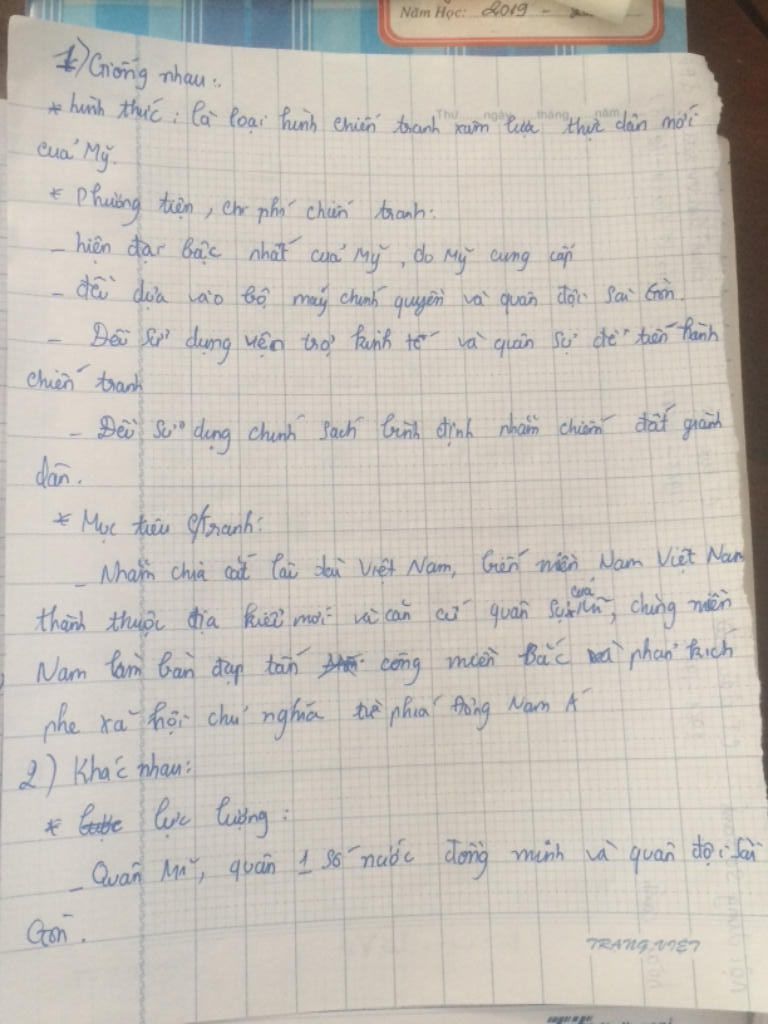 Năm Học: 2019 -
Thứ ngày tháng năm
1) Giống nhau:
* hình thức: là loại hình chiến tranh xâm lược thực dân mới
của Mỹ.
* Phương tiện, chi phí chiến tranh:
- hiện đại bậc nhất của Mỹ, do Mỹ cung cấp
- đều dựa vào bộ máy chính quyền và quân đội Sài Gòn.
- Đều sử dụng viện trợ kinh tế và quân sự để tiến hành
chiến tranh
- Đều sử dụng chính sách bình định nhằm chiếm đất giành
dân.
* Mục tiêu c/tranh:
- Nhằm chia cắt lâu dài Việt Nam, biến miền Nam Việt Nam
thành thuộc địa kiểu mới và căn cứ quân sự của Mĩ, chúng miền
Nam làm bàn đạp tấn công miền Bắc và phản kích
phe xã hội chủ nghĩa từ phía Đông Nam Á
2) Khác nhau:
* lực lượng:
- Quân Mĩ, quân 1 số nước đồng minh và quân đội Sài
Gòn.
TRANG VIET